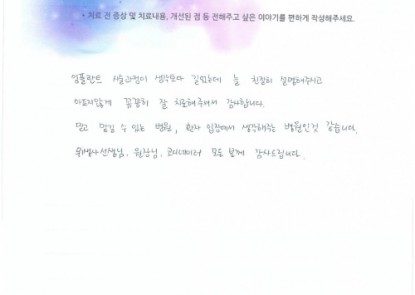 * 치료 전 증상 및 치료내용, 개선된 점 등 전해주고 싶은 이야기를 편하게 작성해주세요.
임플란트 시술과정이 생각보다 길었는데 늘 친절히 설명해주시고
아프지않게 꼼꼼히 잘 치료해주셔서 감사합니다.
믿고 맡길 수 있는 병원, 환자 입장에서 생각해주는 병원인것 같습니다.
위생사선생님, 원장님, 코디네이터 모두 분께 감사드립니다.